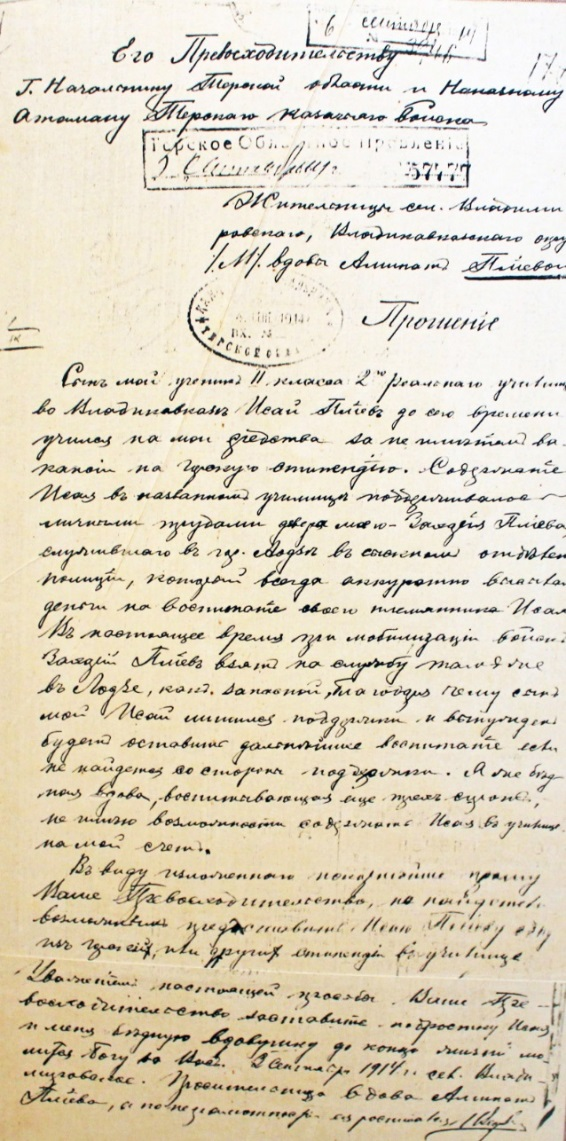 6 сентября 1914
№
Его Превосходительству
Г. Начальнику Терской области и Наказному
Атаману Терскаго казачьяго войска
Терское Областное Правленіе
3 Сентября 57777
Жительницы сел. Владими
ровскаго, Владикавказскаго окр
/М/. вдовы Аминатъ Пліевой
1914
ВХ. №
ТЕРСКОЙ
Прошеніе
Сынъ мой ученикъ II класса 2го реальнаго училищ
во Владикавказѣ Исай Пліевъ до сего времени
учился на мои средства за не имѣніемъ ва
кансіи на горскую стипендію. Содержаніе
Исая въ названномъ училищѣ поддерживалось
личными трудами моего Пліева,
служившаго въ гор. Лодзи въ сыскномъ отдѣлен
полиціи, который всегда аккуратно высылал
деньги на воспитаніе своего племянника Исая
Въ настоящее время при мобилизаціи войскъ
Пліевъ взятъ на службу тамъ же
въ Лодзѣ, какъ запасной, благодаря чему сынъ
мой Исай лишился поддержки и вынужденъ
будетъ оставить дальнѣйшее воспитаніе если
не найдется со стороны поддержки. Я же бѣд
ная вдова, воспитывающая еще трехъ сыновей,
не имѣю возможности содержать Исая въ училище
на мой счетъ.
Въ виду изложеннаго покорнѣйше прошу
Ваше Превосходительство, не найдете ли
возможнымъ предоставить Исаю Пліеву одну
изъ горскихъ, или другихъ стипендій въ училище
Уваженіемъ настоящей просьбы Ваше Пре-
восходительство заставите подростку Исая
и меня бѣдную вдовушку до конца жизни мо-
литься Богу за Васъ. 2 Сентября 1914 г. сел. Влади-
Просительница вдова Аминатъ
Пліева, а по неграмотности ея росписался